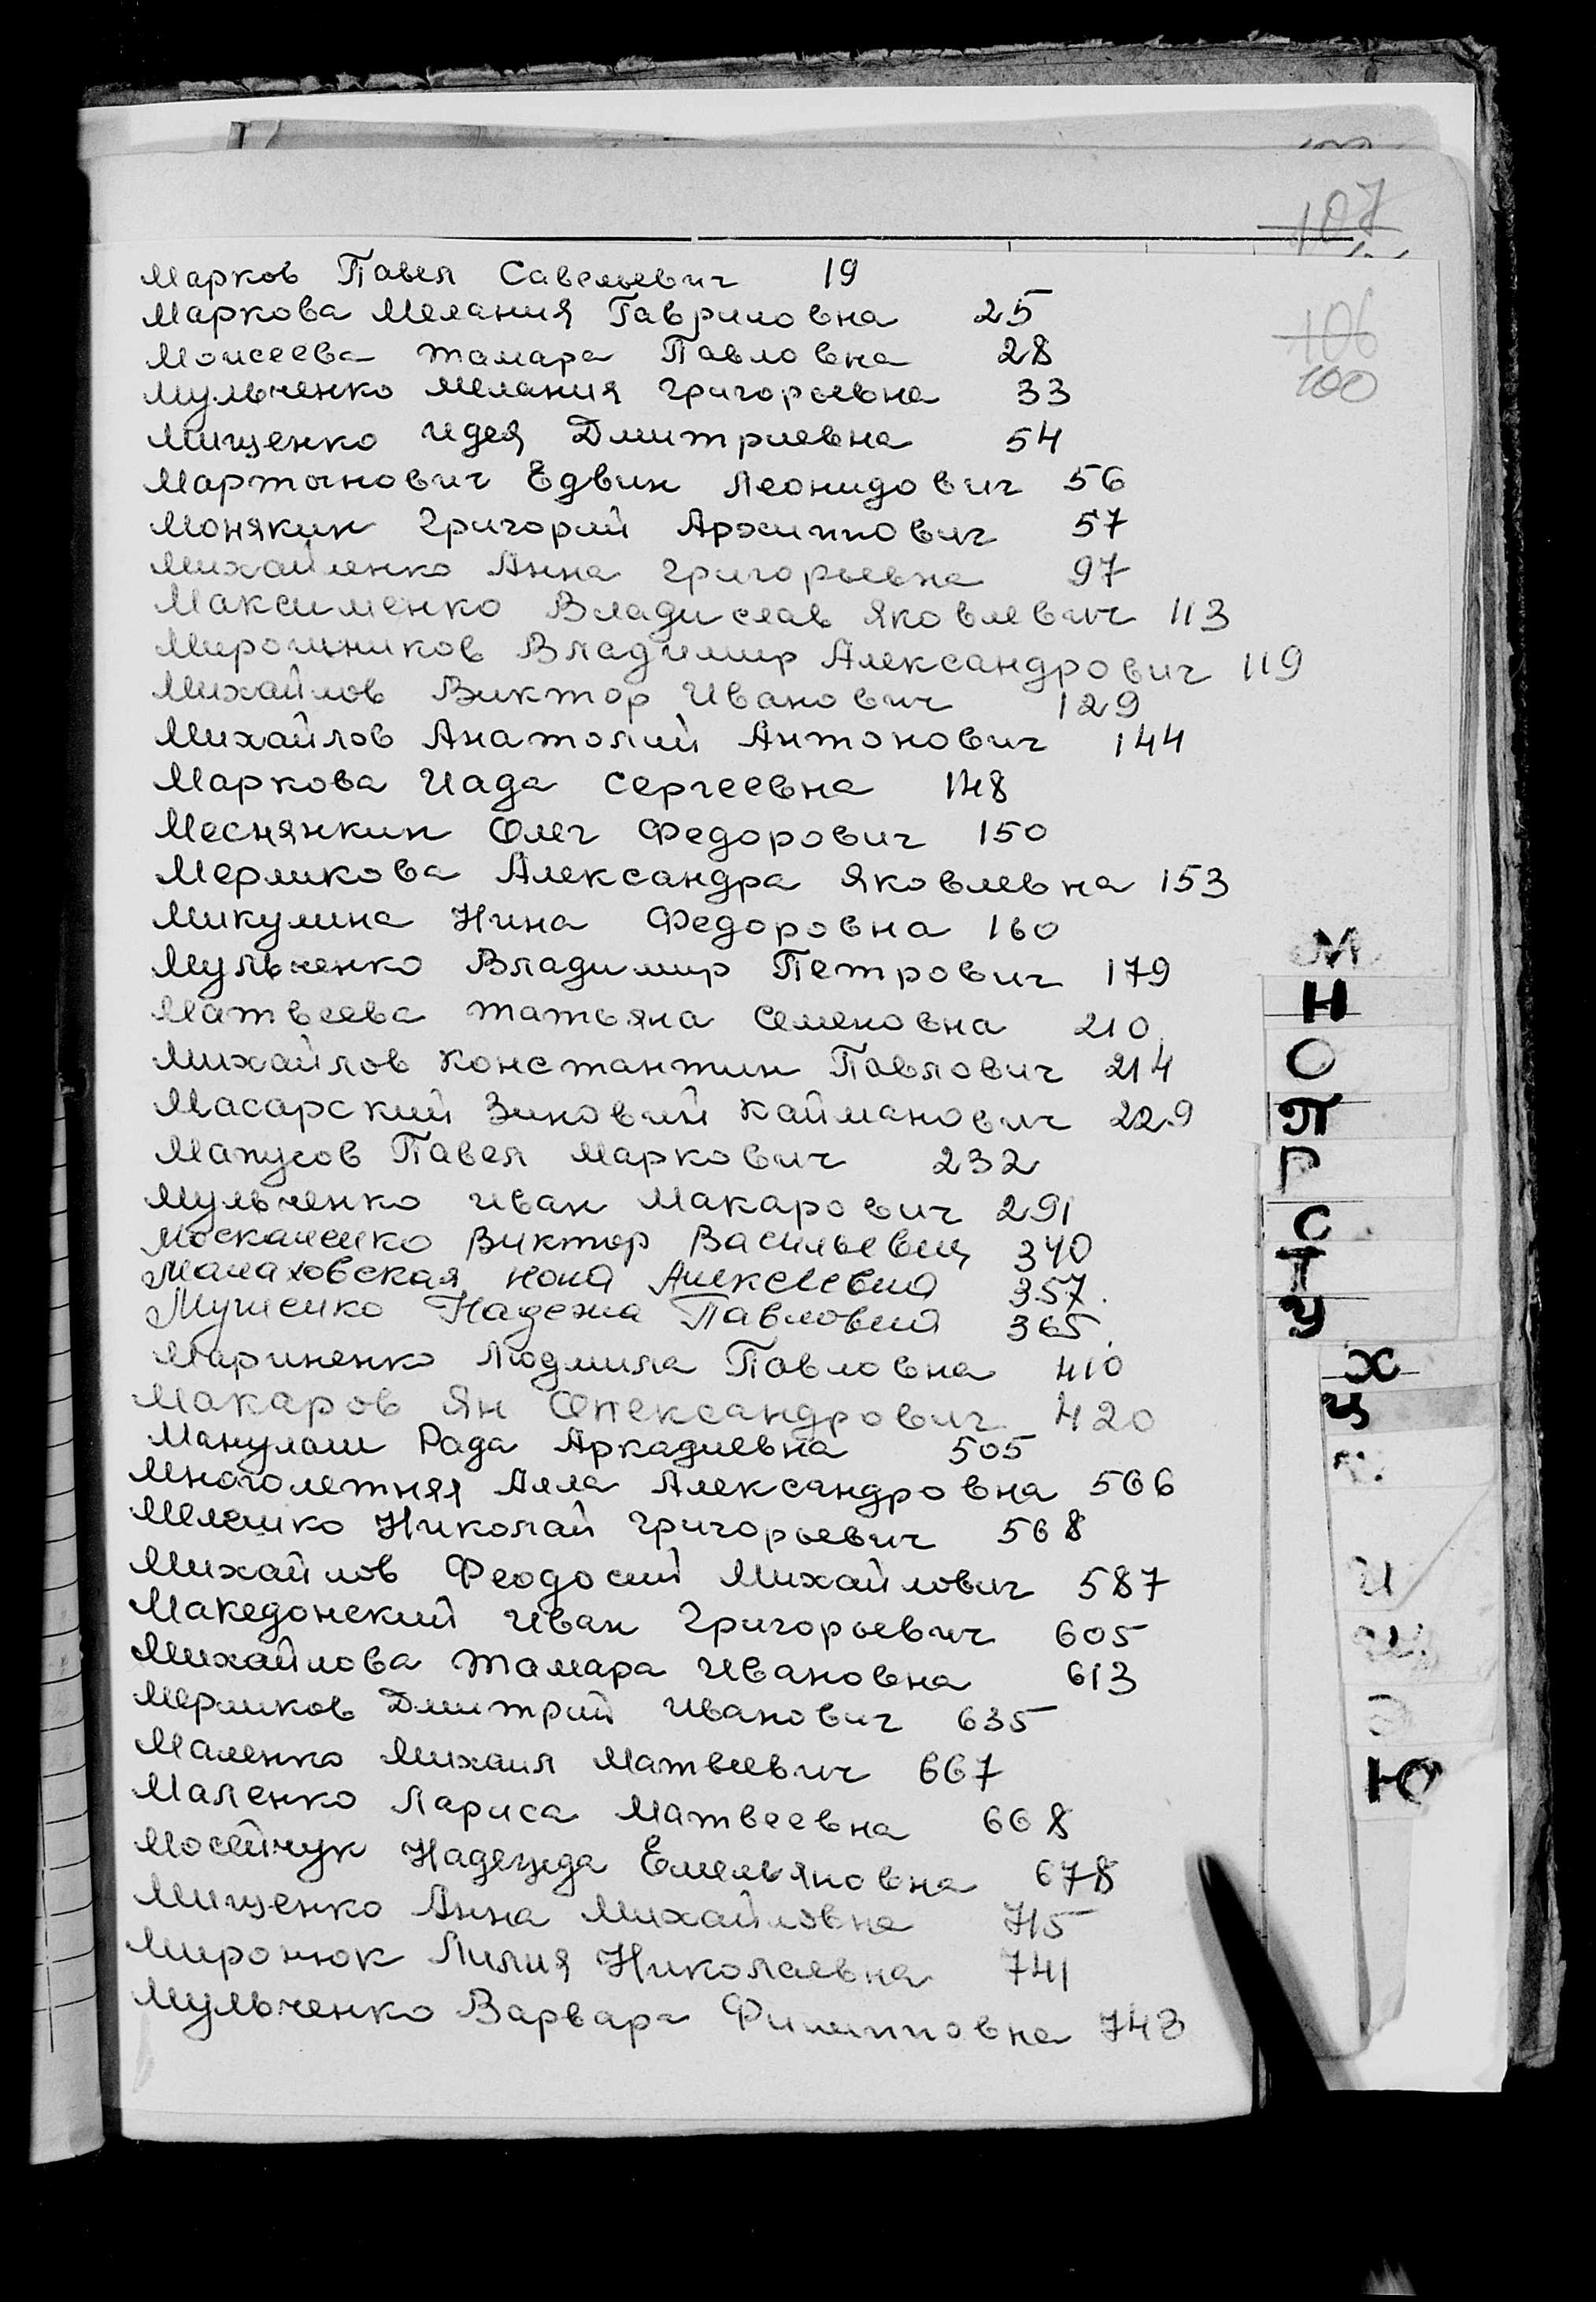 107
106
100
Марков Павел Савельевич 19
Маркова Мелания Гавриловна 25
Моисеева Тамара Павловна 28
Мульченко Мелания Григорьевна 33
Мищенко Идея Дмитриевна 54
Мартынович Едвин Леонидович 56
Монякин Григорий Архиппович 57
Михайленко Анна Григорьевна 97
Максименко Владислав Яковлевич 113
Мирошников Владимир Александрович 119
Михайлов Виктор Иванович 129
Михайлов Анатолий Антонович 144
Маркова Иада Сергеевна 148
Меснянкин Олег Федорович 150
Мерликова Александра Яковлевна 153
Микулина Нина Федоровна 160
Мульченко Владимир Петрович 179
Матвеева Татьяна Семеновна 210
Михайлов Константин Павлович 214
Масарский Зиновий Кайманович 229
Мапусов Павел Маркович 232
Мульченко Иван Макарович 291
Москаленко Виктор Васильевич 340
Малаховская Нона Алексеевна 357
Надежна Павловна 365
Мариненко Людмила Павловна 410
Макаров Ян Олександрович 420
Манулаш Рада Аркадиевна 505
Многолетняя Алла Александровна 566
Мелешко Николай Григорьевич 568
Михайлов Феодосий Михайлович 587
Македонский Иван Григорьевич 605
Михайлова Тамара Ивановна 613
Мерликов Дмитрий Иванович 635
Маленко Михаил Матвеевич 667
Маленко Лариса Матвеевна 668
Мосейчук Надежда Емельяновна 678
Мищенко Анна Михайловна 715
Миронюк Лилия Николаевна 741
Мульченко Варвара Филипповна 743
М
Н
О
П
Р
С
Т
У
Х
Ц
Ю